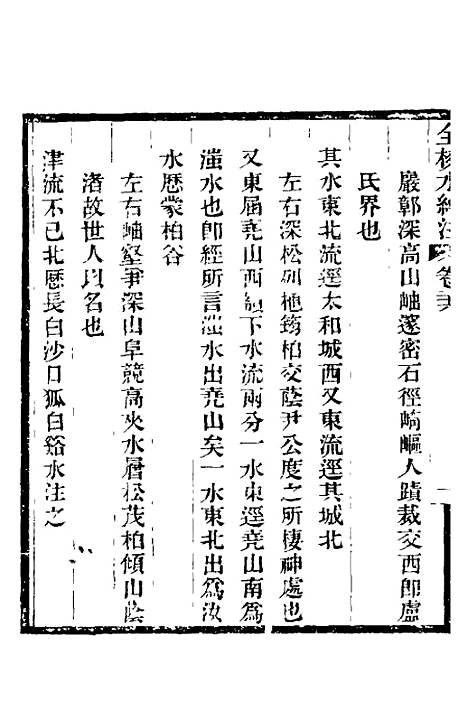 全校水經注 卷
巖鄣深高山岫邃密石徑崎嶇人蹟裁交西卽盧
氏界也
其水東北流逕太和城西又東流逕其城北
左右深松列植筠柏交蔭尹公度之所棲神處也
又東屆堯山西嶺下水流兩分一水東逕堯山南爲
滍水也卽經所言滍水出堯山矣一水東北出爲汝
水歷蒙柏谷
左右岫壑爭深山阜競高夾水層松茂柏傾山蔭
渚故世人以名也
津流不已北歷長白沙口狐白谿水注之